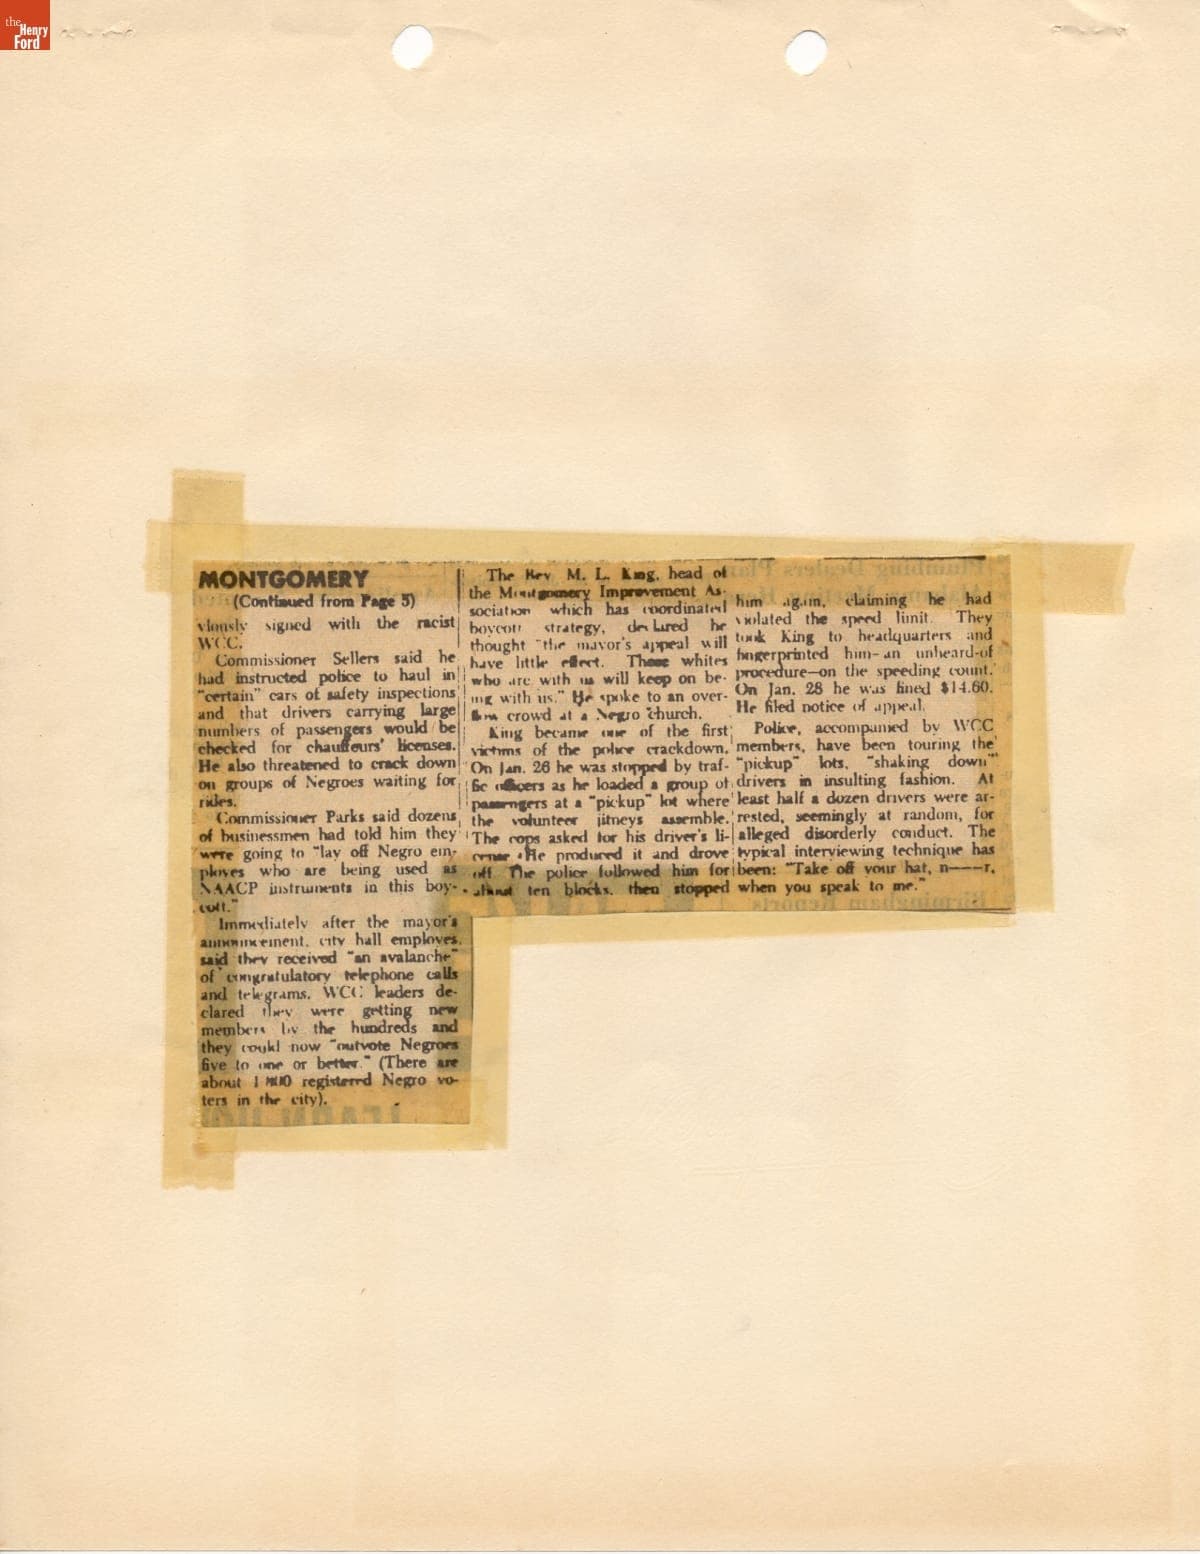 the
Henry
Ford
MONTGOMERY
(Continued from Page 5)
viously signed with the racist
WCC.
Commissioner Sellers said he
had instructed police to haul in
"certain" cars of safety inspections
and that drivers carrying large
numbers of passengers would be
checked for chauffeurs' licenses.
He also threatened to crack down
on groups of Negroes waiting for
rides.
Commissioner Parks said dozens
of businessmen had told him they
were going to "lay off Negro em-
ployes who are being used as
NAACP instruments in this boy-
cott."
Immediately after the mayor's
announcement, city hall employes
said they received "an avalanche"
of congratulatory telephone calls
and telegrams. WCC leaders de-
clared they were getting new
members by the hundreds and
they could now "outvote Negroes
five to one or better." (There are
about registered Negro vo-
ters in the city).
The Rev. M. L. King, head of
the Montgomery Improvement As-
sociation which has coordinated
boycott strategy, declared he
thought "the mayor's appeal will
have little effect. Those whites
who are with us will keep on be-
ing with us." He spoke to an over-
flow crowd at a Negro church.
King became one of the first
victims of the police crackdown.
On Jan. 26 he was stopped by traf-
fic officers as he loaded a group of
passengers at a "pickup" lot where
the volunteer jitneys assemble.
The cops asked for his driver's li-
cense. He produced it and drove
off. The police followed him for
about ten blocks, then stopped
him again, claiming he had
violated the speed limit. They
took King to headquarters and
fingerprinted him—an unheard-of
procedure—on the speeding count.
On Jan. 28 he was fined $14.60.
He filed notice of appeal.
Police, accompanied by WCC
members, have been touring the
"pickup" lots, "shaking down"
drivers in insulting fashion. At
least half a dozen drivers were ar-
rested, seemingly at random, for
alleged disorderly conduct. The
typical interviewing technique has
been: "Take off your hat, n——r,
when you speak to me."